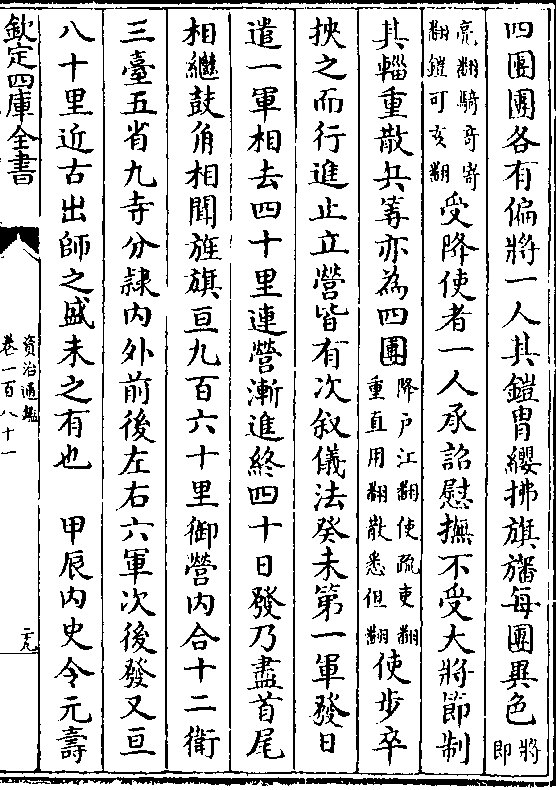 四團團各有偏將一人其鎧胄纓拂旗旛每團異色將即
亮翻騎奇寄翻鎧可亥翻受降使者一人承詔慰撫不受大將節制
其輜重散兵等亦為四團降户江翻使疏吏翻重直用翻散悉但翻使步卒
挾之而行進止立營皆有次叙儀法癸未第一軍發日
遣一軍相去四十里連營漸進終四十日發乃盡首尾
相繼鼓角相聞旌旗亘九百六十里御營内合十二衛
三臺五省九寺分隸内外前後左右六軍次後發又亘
八十里近古出師之盛未之有也　甲辰内史令元壽
欽定四庫全書
資治通鑑
卷一百八十一
二十九